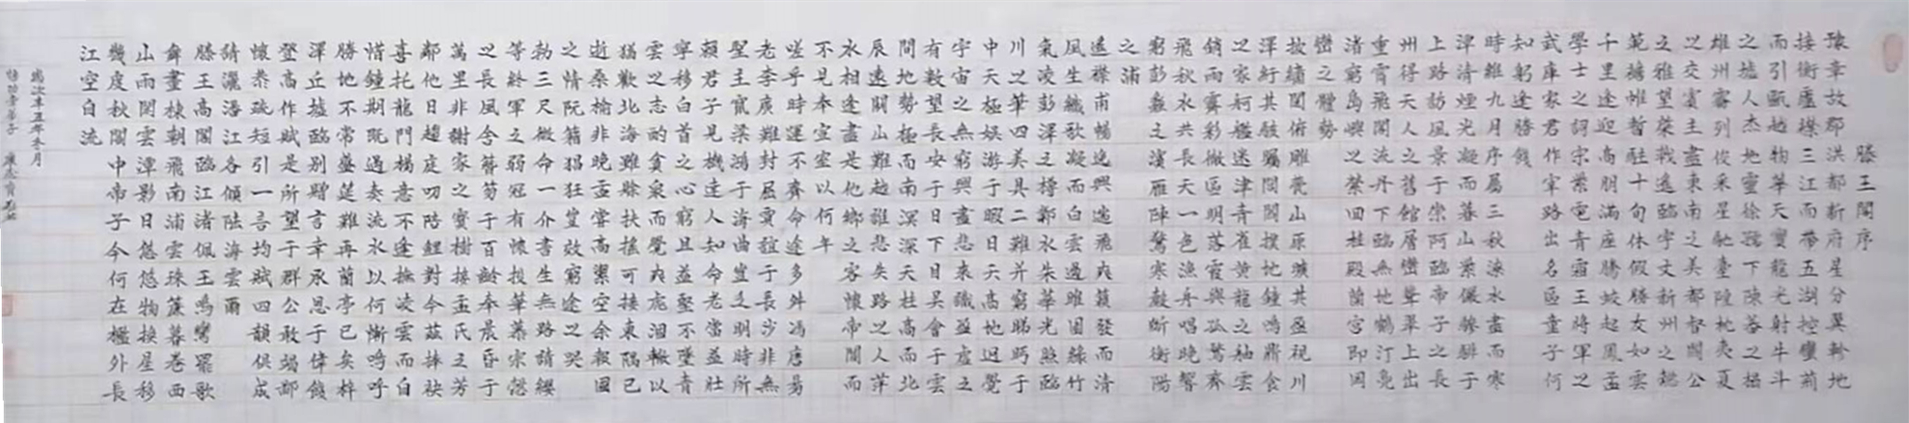 滕王閣序
豫章故郡洪都新府星分翼軫地
接衡廬襟三江而帶五湖控蠻荊
而引甌越物華天寶龍光射牛斗
之墟人杰地靈徐孺下陳蕃之榻
雄州霧列俊采星馳臺隍枕夷夏
之交賓主盡東南之美都督閻公
之雅望棨戟遙臨宇文新州之懿
範襜帷暫駐十旬休假勝友如雲
千里逢迎高朋滿座騰蛟起鳳孟
學士之詞宗紫電青霜王將軍之
武庫家君作宰路出名區童子何
知躬逢勝餞
時維九月序屬三秋潦水盡而寒
潭清煙光凝而暮山紫儼驂騑于
上路訪風景于崇阿臨帝子之長
州得天人之舊館層巒聳翠上出
重霄飛閣流丹下臨無地鶴汀鳧
渚窮島嶼之縈回桂殿蘭宮即岡
巒之體勢
披繡闥俯雕甍山原曠其盈視川
澤紆其駭矚閭閻撲地鐘鳴鼎食
之家舸艦迷津青雀黃龍之舳雲
銷雨霽彩徹區明落霞與孤鶩齊
飛秋水共長天一色漁舟唱晚響
窮彭蠡之濱雁陣驚寒聲斷衡陽
之浦
遙襟甫暢逸興遄飛爽籟發而清
風生纖歌凝而白雲遏睢園綠竹
氣凌彭澤之樽鄴水朱華光照臨
川之筆四美具二難并窮睇眄于
中天極娛游于暇日天高地迥覺
宇宙之無窮興盡悲來識盈虛之
有數望長安于日下目吳會于雲
間地勢極而南溟深天柱高而北
辰遠關山難越誰悲失路之人萍
水相逢盡是他鄉之客懷帝閽而
不見奉宣室以何年
嗟乎時運不齊命途多舛馮唐易
老李廣難封屈賈誼于長沙非無
聖主竄梁鴻于海曲豈乏明時所
賴君子見機達人知命老當益壯
寧移白首之心窮且益堅不墜青
雲之志酌貪泉而覺爽處涸轍以
猶歡北海雖賒扶搖可接東隅已
逝桑榆非晚孟嘗高潔空余報國
之情阮籍猖狂豈效窮途之哭
勃三尺微命一介書生無路請纓
等終軍之弱冠有懷投筆慕宗愨
之長風舍簪笏于百齡奉晨昏于
萬里非謝家之寶樹接孟氏之芳
鄰他日趨庭叨陪鯉對今茲捧袂
喜托龍門楊意不逢撫凌雲而自
惜鐘期既遇奏流水以何慚嗚呼
勝地不常盛筵難再蘭亭已矣梓
澤丘墟臨別贈言幸承恩于偉餞
登高作賦是所望于群公敢竭鄙
懷恭疏短引一言均賦四韻俱成
請灑潘江各傾陸海雲爾
滕王高閣臨江渚佩玉鳴鸞罷歌
舞畫棟朝飛南浦雲珠簾暮卷西
山雨閑雲潭影日悠悠物換星移
幾度秋閣中帝子今何在檻外長
江空自流
歲次辛丑年冬月